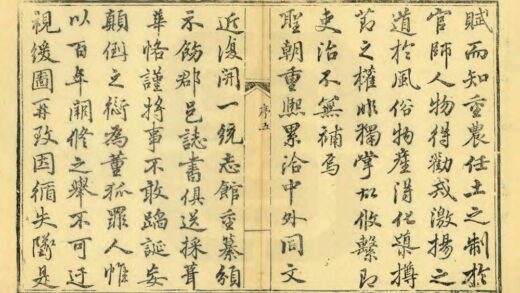 賦而知重農任土之制於
官師人物得勸戒激揚之
道於風俗物產得化導撙
節之權非獨掌故攸繫即
吏治不無補焉
聖朝重熙累洽中外同文
序五
近復開一統志館重纂頒
示飭郡邑誌書俱送採葺
華恪謹將事不敢蹈誕妄
顛倒之愆為董狐罪人惟
以百年闕修之舉不可迂
視緩圖再致因循失墜是